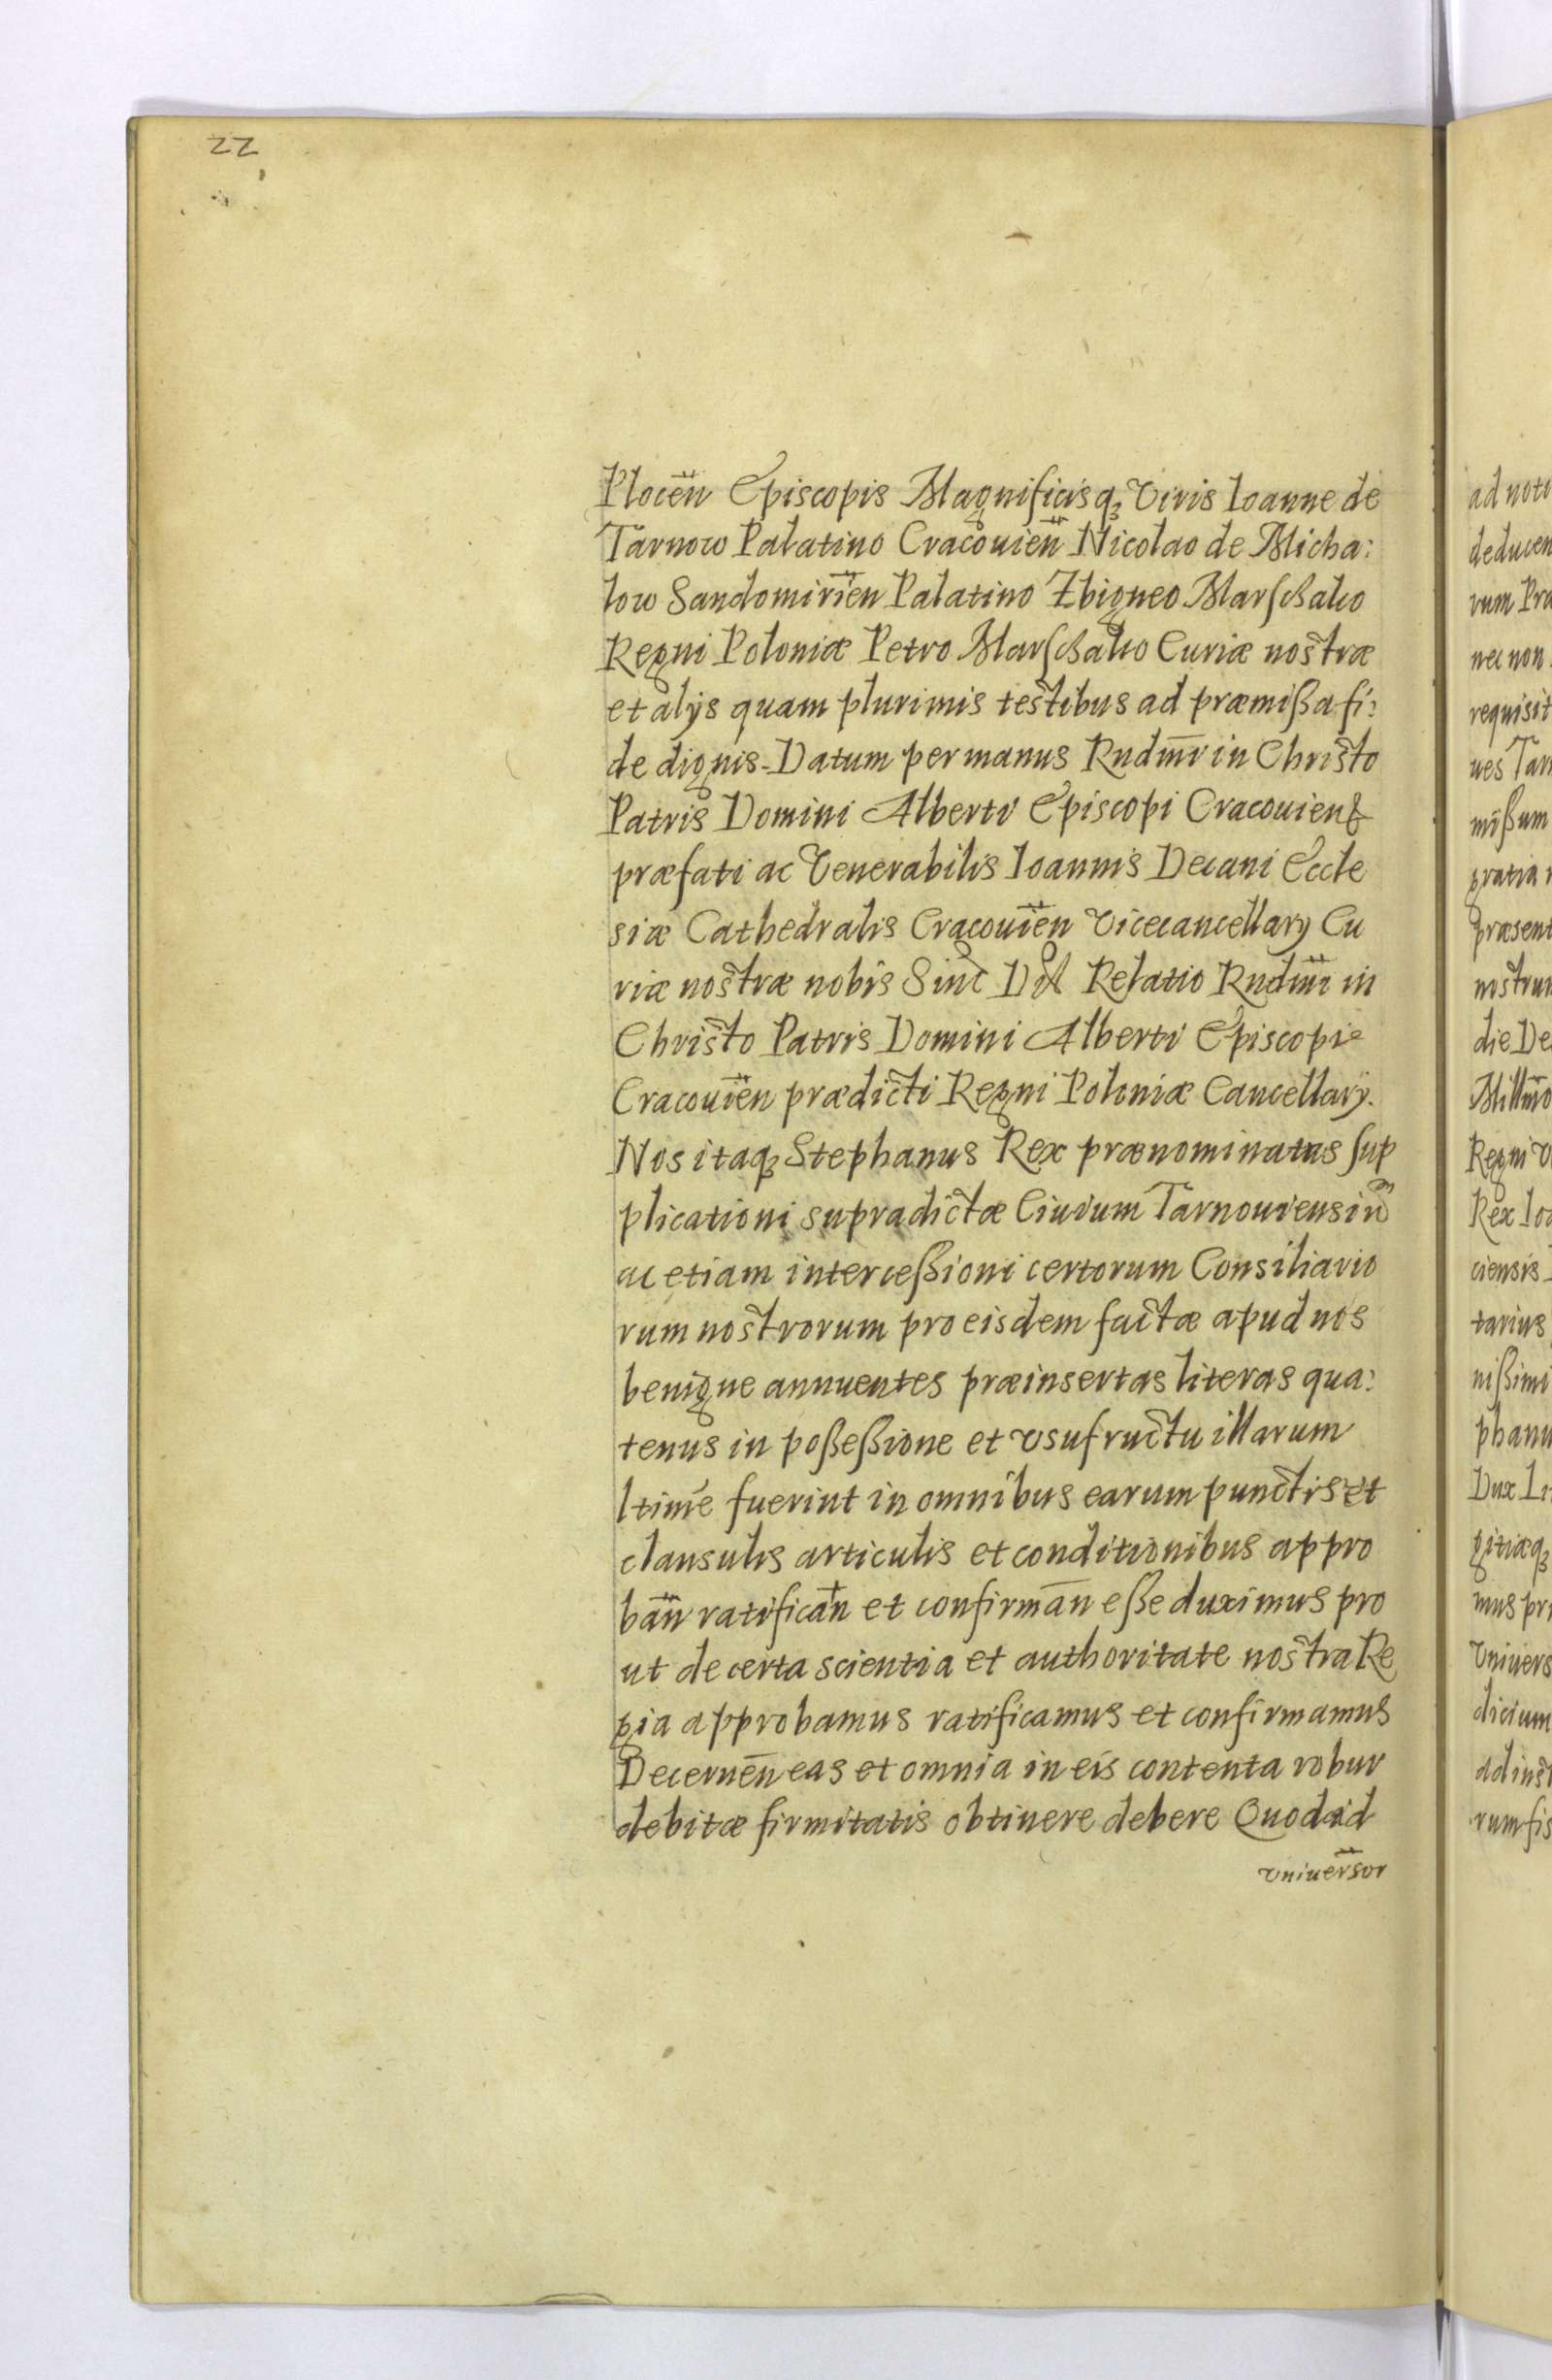 22
Plocen̄ Episcopis Magnificisq₃ Viris Ioanne de
Tarnow Palatino Cracouien̄ Nicolao de Micha:
low Sandomirien̄ Palatino Zbigneo Marschalco
Regni Poloniæ Petro Marschalco Curiæ nostræ
et alÿs quam plurimis testibus ad præmißa fi:
de dignis. Datum per manus Rndm̄i in Christo
Patris Domini Alberti Episcopi Cracouien̄
præfati ac Venerabilis Ioannis Decani Eccle
siæ Cathedralis Cracouien̄ Vicecancellarÿ Cu
riæ nostræ nobis Sinc̄ Dil Relatio Rndm̄i in
Christo Patris Domini Alberti Episcopi
Cracouien̄ prædicti Regni Poloniæ Cancellarÿ.
Nos itaq₃ Stephanus Rex prænominatus sup
plicationi supradictæ Ciuium Tarnouiensiū
ac etiam interceßioni certorum Consiliario
rum nostrorum pro eisdem factæ apud nos
benigne annuentes præinsertas literas qua:
tenus in poßeßione et vsufructu illarum
ltime fuerint in omnibus earum punctis et
clausulis articulis et conditionibus appro
ban̄ ratifican̄ et confirman̄ eße duximus pro
ut de certa scientia et authoritate nostra Re
gia approbamus ratificamus et confirmamus
Decernen̄ eas et omnia in eis contenta robur
debitæ firmitatis obtinere debere Quod ad
vniuersor̄
ad noti
deducen
rum Pra
nec non
requisit
ues Tar
mißum
gratia
præsent
nostrum
die De
Millm̄o
Regni V
Rex Ioa
ciensis
tarius
nißimi
phanu
Dux Li
gitiæq₃
mus pr
Vniuers
dicium
ad inst
rum fis